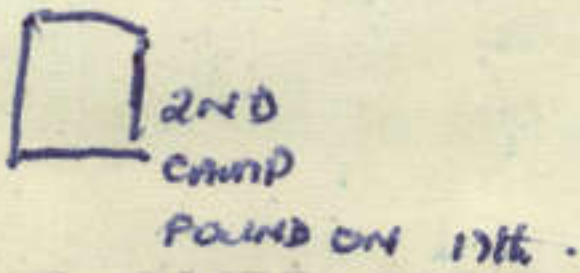 2ND
CAMP
POUND ON 17th.